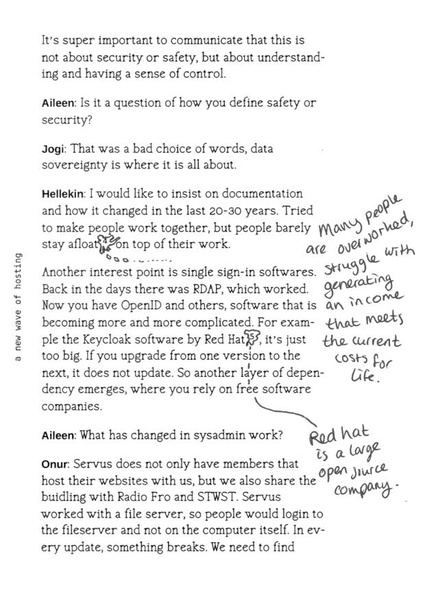 It's super important to communicate that this is
not about security or safety, but about understand-
ing and having a sense of control.
Aileen: Is it a question of how you define safety or
security?
Jogi: That was a bad choice of words, data
sovereignty is where it is all about.
Hellekin: I would like to insist on documentation
and how it changed in the last 20-30 years. Tried
to make people work together, but people barely
stay afloat on top of their work.
Many people
are overworked,
struggle with
generating
an income
that meets
the current
costs for
life.
Another interest point is single sign-in softwares.
Back in the days there was RDAP, which worked.
Now you have OpenID and others, software that is
becoming more and more complicated. For exam-
ple the Keycloak software by Red Hat, it's just
too big. If you upgrade from one version to the
next, it does not update. So another layer of depen-
dency emerges, where you rely on free software
companies.
Red hat
is a large
open source
company.
Aileen: What has changed in sysadmin work?
Onur: Servus does not only have members that
host their websites with us, but we also share the
buidling with Radio Fro and STWST. Servus
worked with a file server, so people would login to
the fileserver and not on the computer itself. In ev-
ery update, something breaks. We need to find
a new wave of hosting